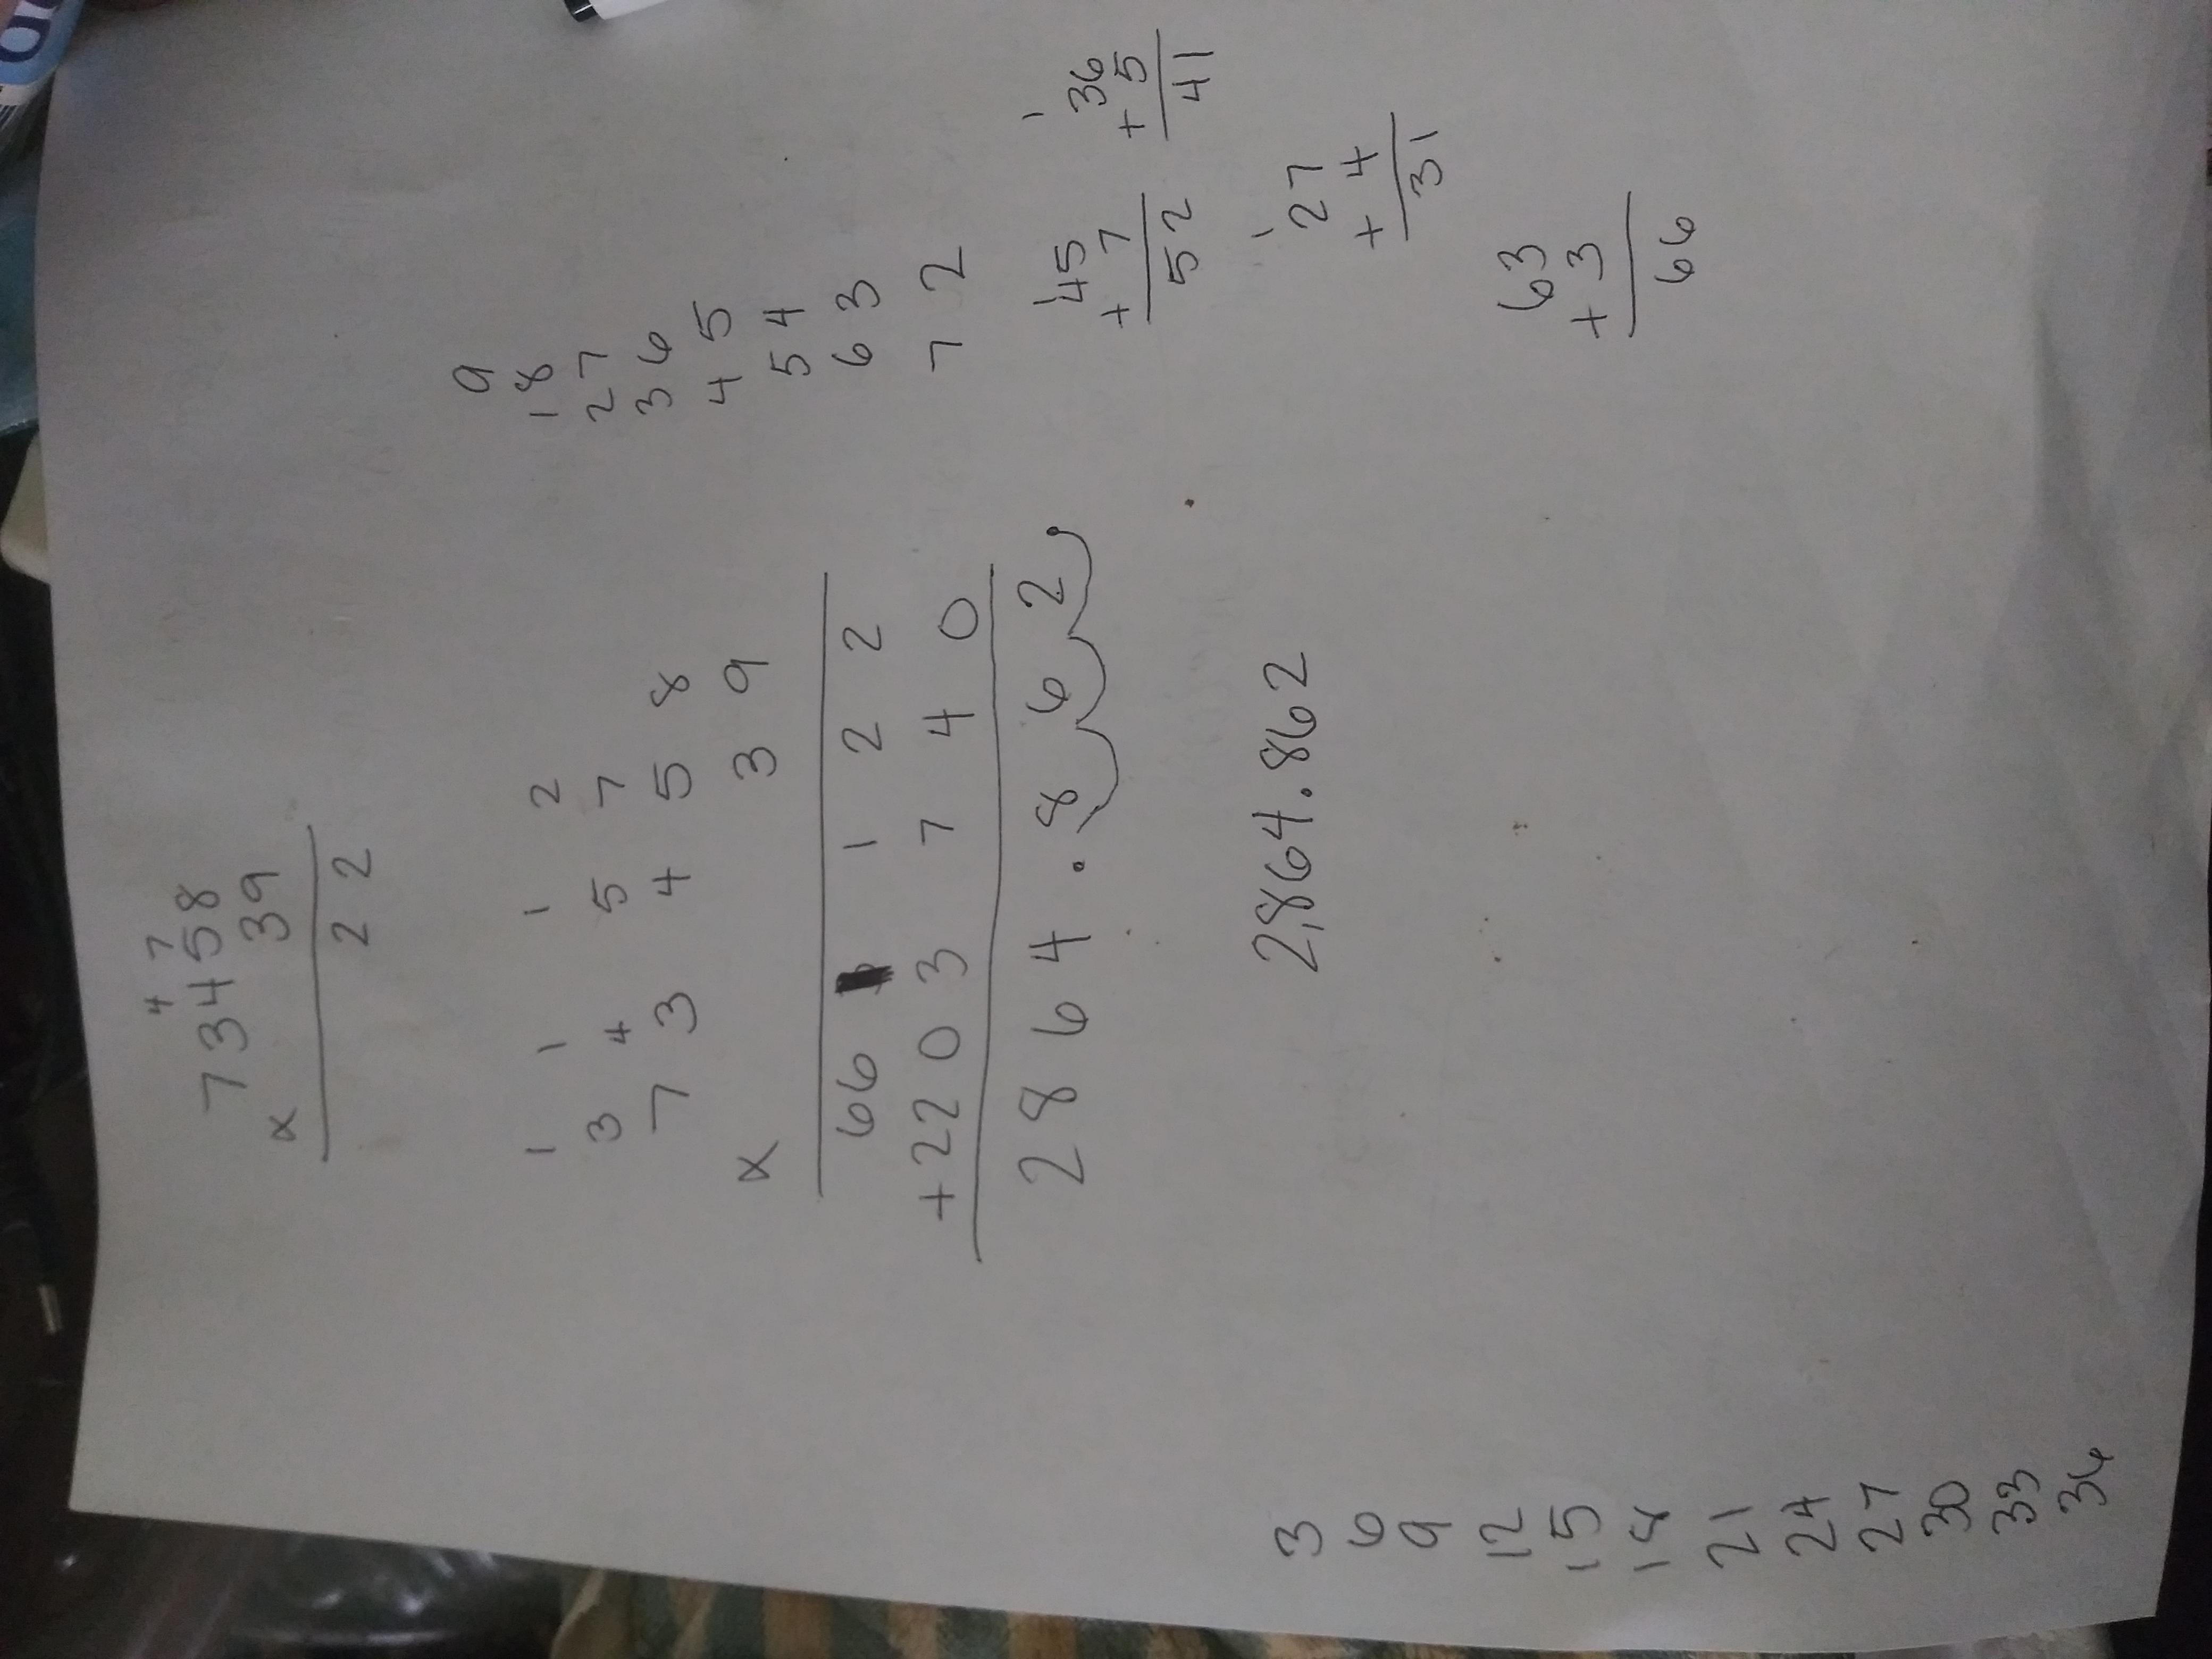 4 7
73458
x 39
2 2
1 1 1 2
3 4 5 7
7 3 4 5 8
x 3 9
66 1 2 2
+2203 7 4 0
2 8 6 4 . 8 6 2
2,864.862
9
18
27
36
45
54
63
72
1
45
+ 7
52
1
36
+ 5
41
1
27
+ 4
31
63
+ 3
66
3
6
9
12
15
18
21
24
27
30
33
36